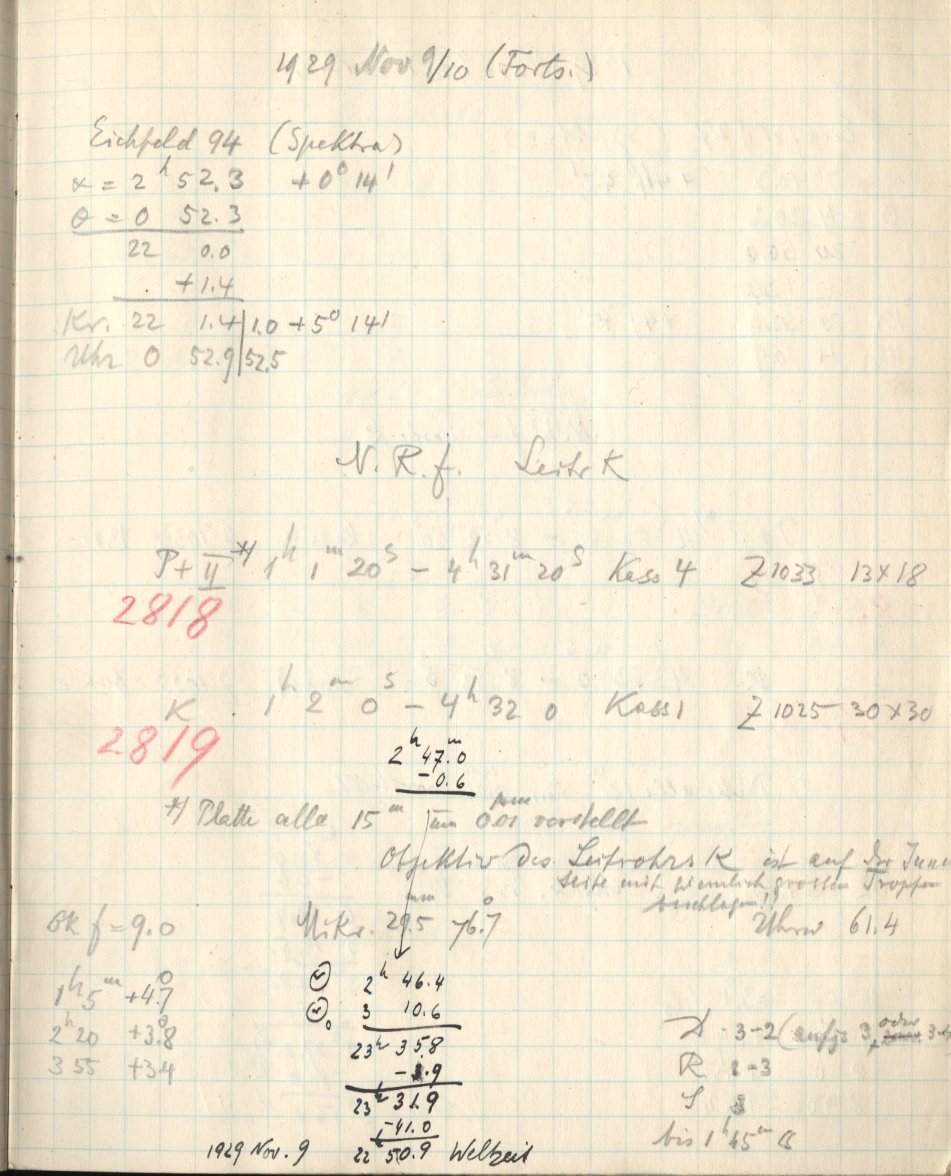 1929 Nov 9/10 (Forts.)
Eichfeld 94 (Spektra)
α = 2ʰ 52.3 +0° 14'
θ = 0 52.3
22 0.0
+1.4
Kr. 22 1.4 | 1.0 +5° 14'
Uhr 0 52.9 | 52.5
N.R.f. Leitr K
P + II *) 1ʰ 1ᵐ 20ˢ – 4ʰ 31ᵐ 20ˢ Kass 4 Z 1033 13×18
2818
K 1ʰ 2ᵐ 0ˢ – 4ʰ 32 0 Kass 1 Z 1025 30×30
2819
2ʰ 47.ᵐ0
-0.6
*) Platte alle 15ᵐ um 0.01 mm verstellt
Objektiv des Leitrohrs K ist auf der Innen
seite mit ziemlich grossen Tropfen
beschlagen!!
Ok f = 9.0 Mikr. 29.5 mm 76.°7 Uhrw 61.4
1ʰ 5ᵐ +4.°7
2ʰ 20 +3.°8
3 55 +3.4
2ʰ 46.4
3 10.6
23ʰ 35.8
23ʰ 31.9
-41.0
22ʰ 50.9 Weltzeit
1929 Nov. 9
3-2 (aufg 3, oder 3-4
R 2-3
S 3
bis 1ʰ 45ᵐ